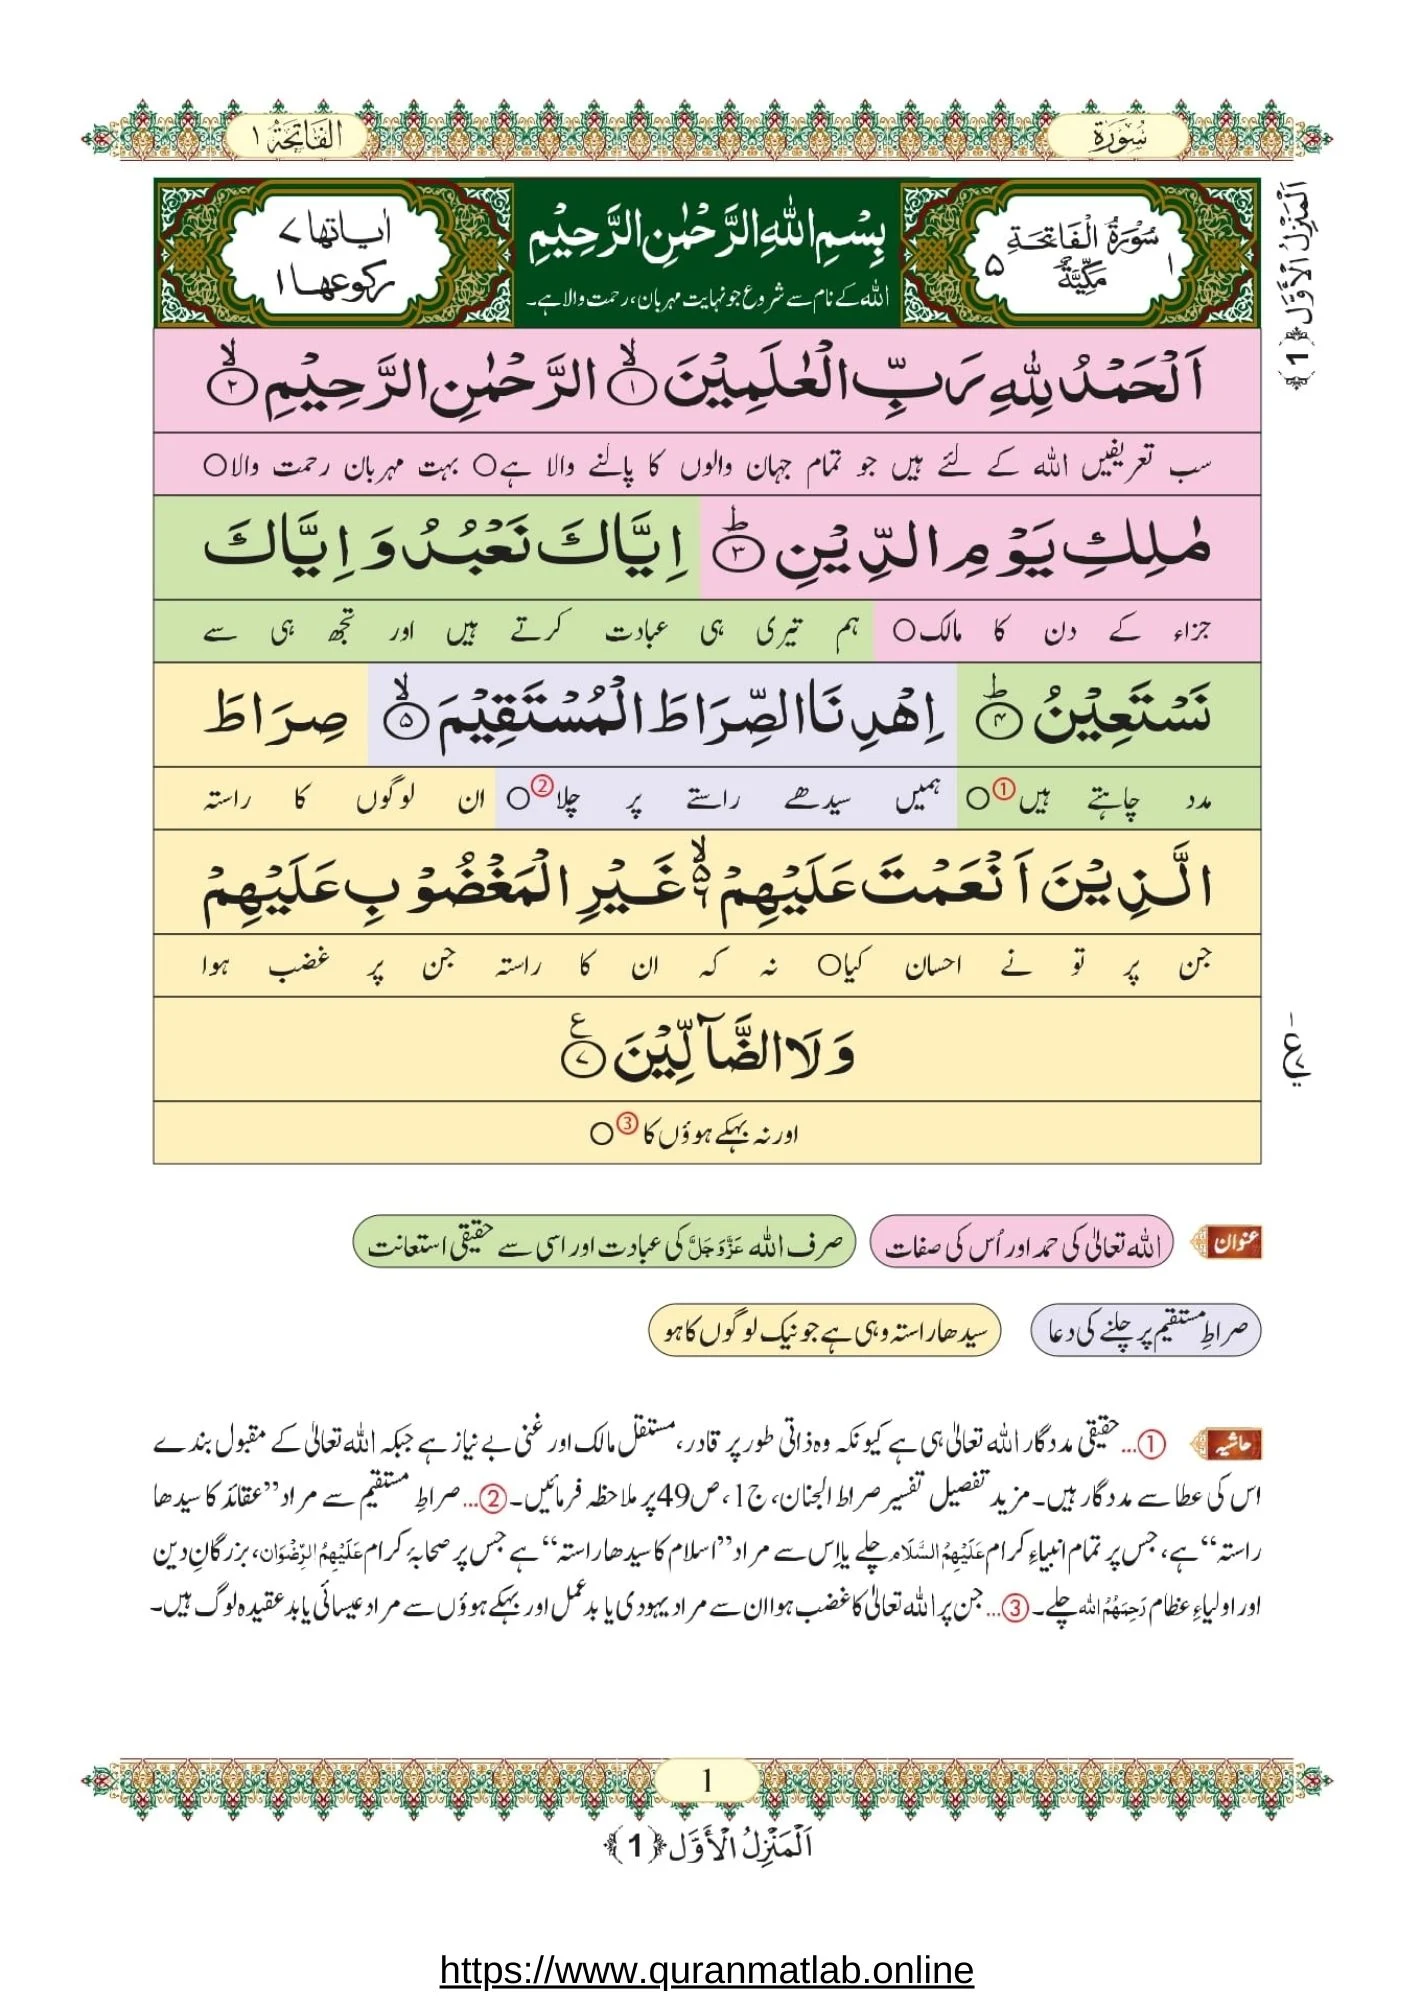 سُوْرَة الفَاتِحَة ١
اَلْمَنْزِلُ الْاَوَّل ﴿1﴾
سُوْرَةُ الْفَاتِحَةِ
١ مَكِّيَّةٌ ٥
بِسْمِ اللّٰهِ الرَّحْمٰنِ الرَّحِيْمِ
اللّٰه کے نام سے شروع جو نہایت مہربان، رحمت والا ہے۔
اٰیاتها ٧
رکوعها ١
اَلْحَمْدُ لِلّٰهِ رَبِّ الْعٰلَمِيْنَ ۙ﴿١﴾ الرَّحْمٰنِ الرَّحِيْمِ ۙ﴿٢﴾
سب تعریفیں اللّٰه کے لئے ہیں جو تمام جہان والوں کا پالنے والا ہے○ بہت مہربان رحمت والا○
مٰلِكِ يَوْمِ الدِّيْنِ ؕ﴿٣﴾ اِيَّاكَ نَعْبُدُ وَ اِيَّاكَ
جزاء کے دن کا مالک○ ہم تیری ہی عبادت کرتے ہیں اور تجھ ہی سے
نَسْتَعِيْنُ ؕ﴿٤﴾ اِهْدِنَا الصِّرَاطَ الْمُسْتَقِيْمَ ۙ﴿٥﴾ صِرَاطَ
مدد چاہتے ہیں①○ ہمیں سیدھے راستے پر چلا②○ ان لوگوں کا راستہ
الَّذِيْنَ اَنْعَمْتَ عَلَيْهِمْ ۙ۬ۦ غَيْرِ الْمَغْضُوْبِ عَلَيْهِمْ
جن پر تو نے احسان کیا○ نہ کہ ان کا راستہ جن پر غضب ہوا
وَلَا الضَّآلِّيْنَ ﴿٧﴾ ع
اور نہ بہکے ہوؤں کا③○
عنوان اللّٰه تعالیٰ کی حمد اور اُس کی صفات صرف اللّٰه عَزَّوَجَلَّ کی عبادت اور اسی سے حقیقی استعانت
صراطِ مستقیم پر چلنے کی دعا سیدھا راستہ وہی ہے جو نیک لوگوں کا ہو
حاشیہ ①…حقیقی مددگار اللّٰه تعالیٰ ہی ہے کیونکہ وہ ذاتی طور پر قادر، مستقل مالک اور غنی بے نیاز ہے جبکہ اللّٰه تعالیٰ کے مقبول بندے
اس کی عطا سے مددگار ہیں۔ مزید تفصیل تفسیر صراط الجنان، ج1، ص49 پر ملاحظہ فرمائیں۔ ②…صراطِ مستقیم سے مراد ”عقائد کا سیدھا
راستہ“ ہے، جس پر تمام انبیاءِ کرام عَلَيْهِمُ السَّلَام چلے یا اِس سے مراد ”اسلام کا سیدھا راستہ“ ہے جس پر صحابۂ کرام عَلَيْهِمُ الرِّضْوَان، بزرگانِ دین
اور اولیاءِ عظام رَحِمَهُمُ اللّٰه چلے۔ ③…جن پر اللّٰه تعالیٰ کا غضب ہوا ان سے مراد یہودی یا بدعمل اور بہکے ہوؤں سے مراد عیسائی یا بدعقیدہ لوگ ہیں۔
1
اَلْمَنْزِلُ الْاَوَّل ﴿1﴾
https://www.quranmatlab.online